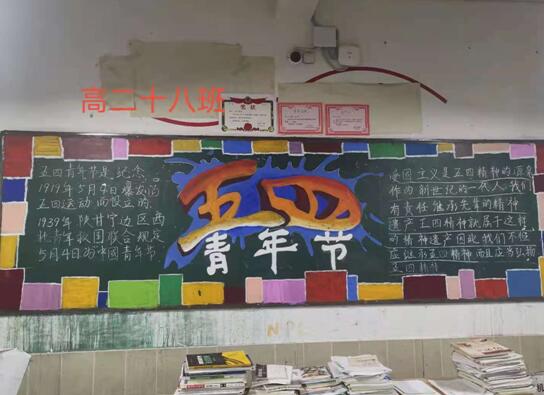 高二十八班
奖状
五四青年节是纪念
1919年5月4日爆发的
五四运动而设立的,
1939年陕甘宁边区西
北青年救国联合规定
5月4日为中国青年节
五四
青年节
爱国主义是五四精神的源泉
作为创世纪的一代人,我们
有责任继承先辈的精神
遗产五四精神就属于这样
的精神遗产因此我们不但
应继承五四精神而且应当弘扬
五四精神